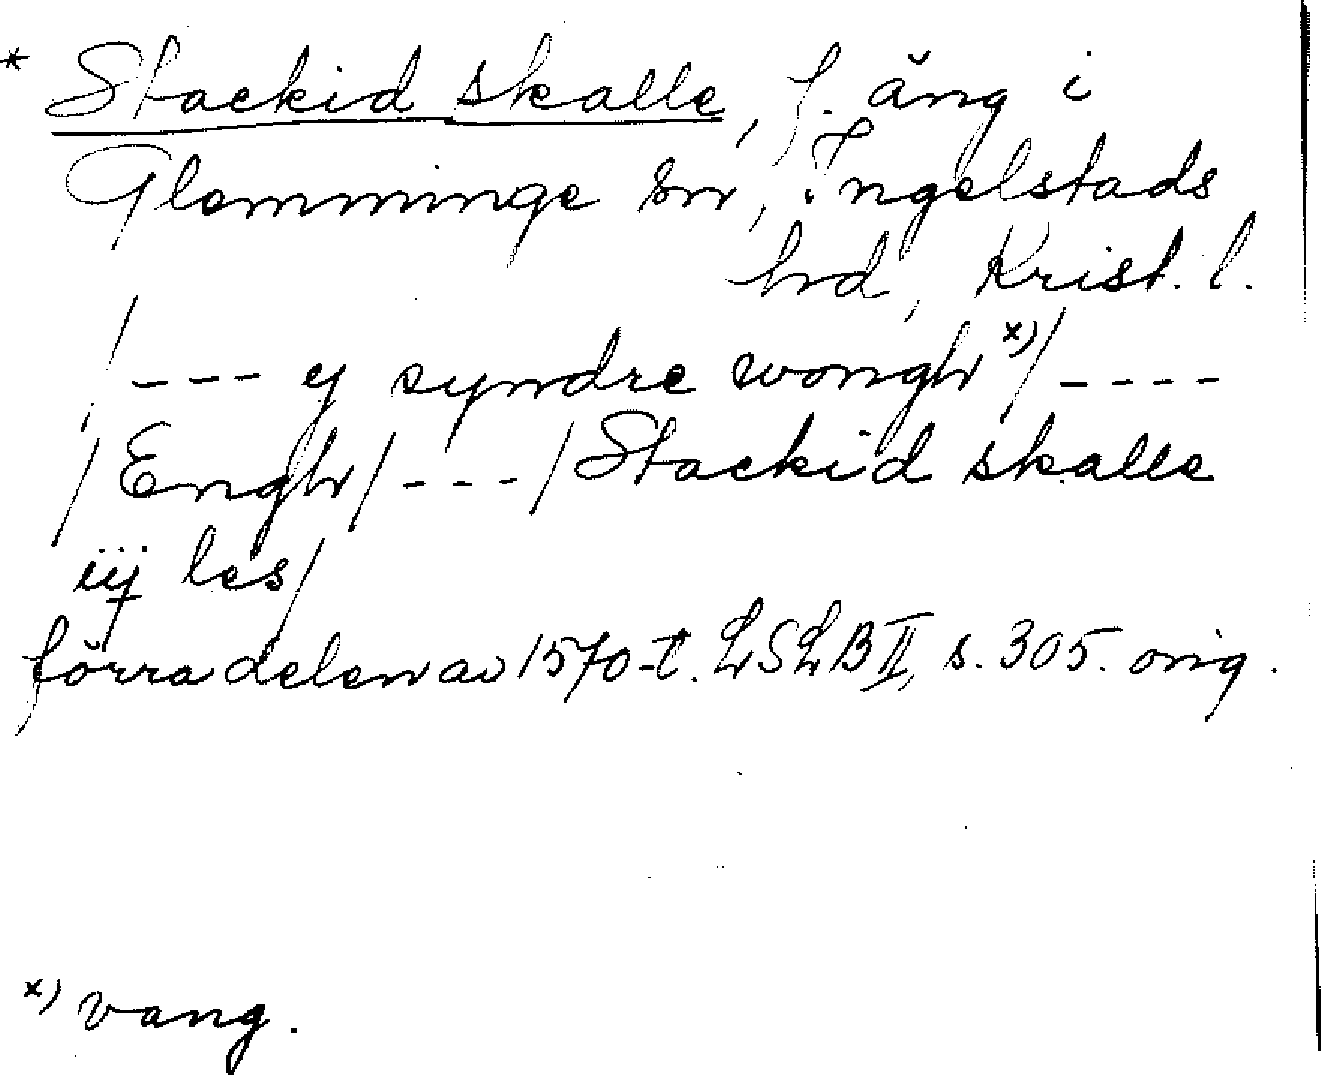 * Stackid skalle, f. äng i
Glemminge sn, Ingelstads
hd, Krist. l.
/--- y syndre wongh x)/----
/Engh/---/Stackid skalle
iij les/
förra delen av 1570-t. LSLB II, s. 305. orig.
x) vang.